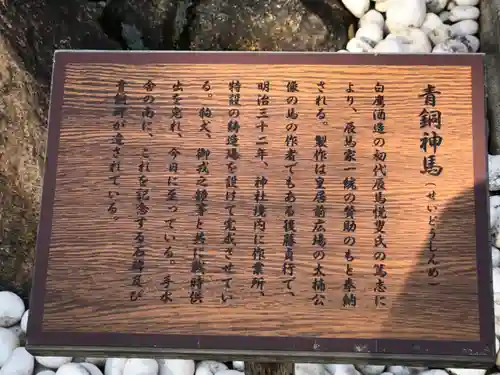 青銅神馬（せいどうしんめ）
白鷹酒造の初代辰馬悦叟氏の篤志に
より、辰馬家一統の賛助のもと奉納
される。製作は皇居前広場の大楠公
像の馬の作者でもある後藤貞行で、
明治三十二年、神社境内に作業所、
特設の鋳造場を設けて完成させてい
る。狛犬、御戎之鐘等と共に戦時供
出を免れ、今日に至っている。手水
舎の南に、これを記念する石碑及び
青銅碑が遺されている。